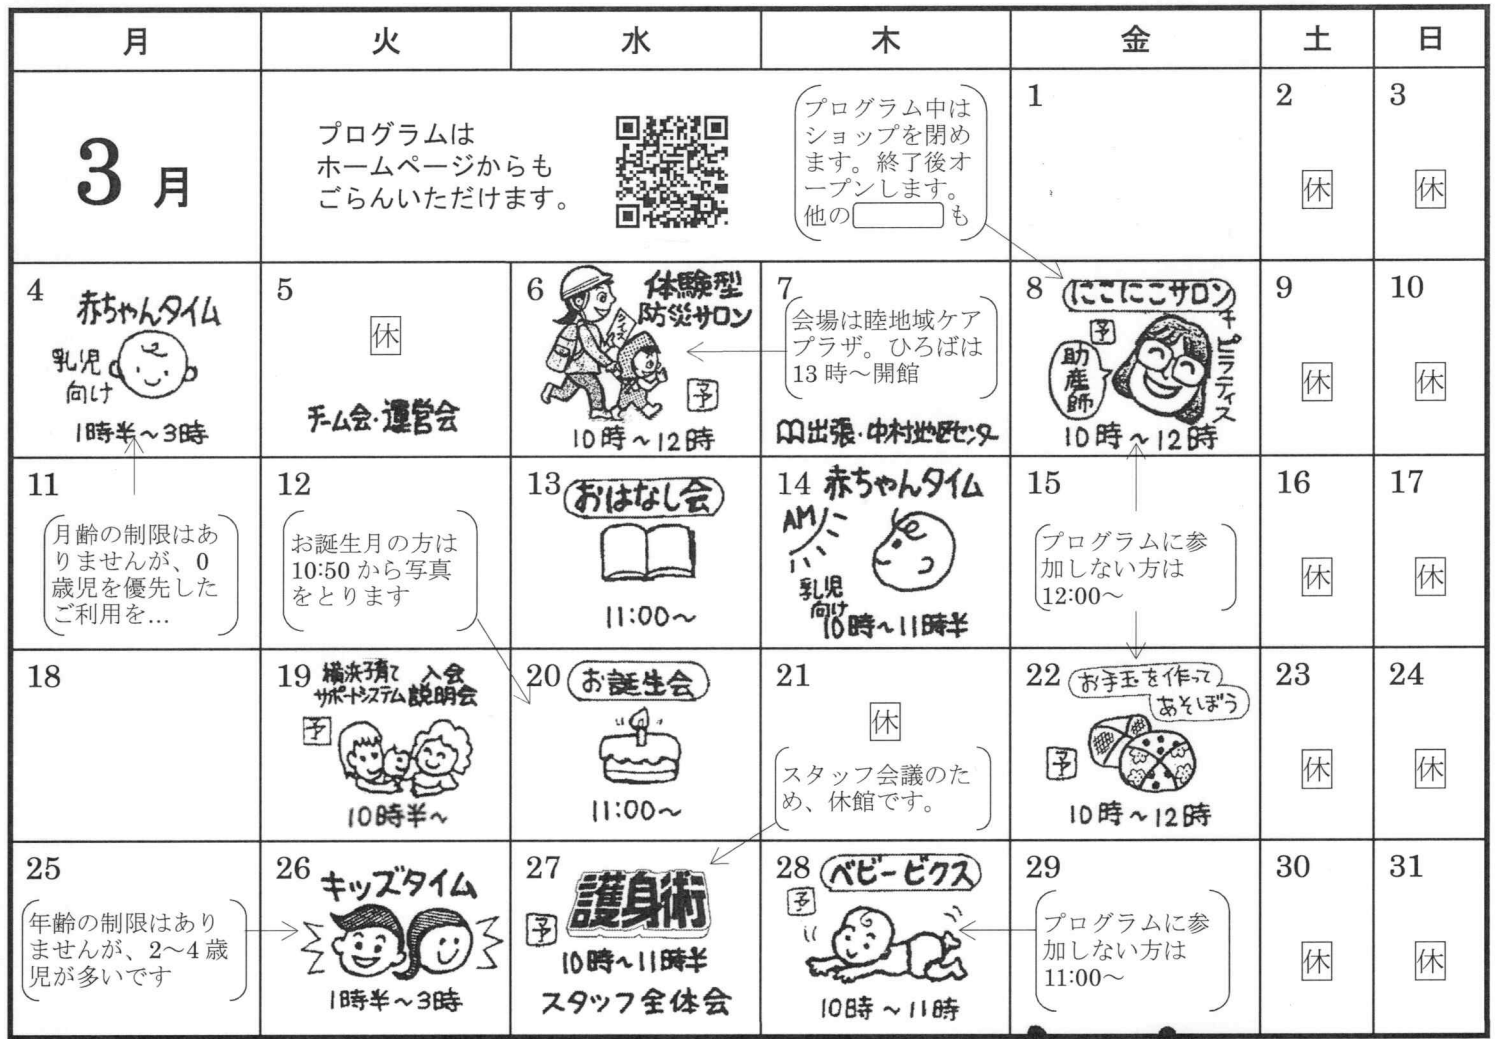 月 火 水 木 金 土 日
3月
プログラムは
ホームページからも
ごらんいただけます。
プログラム中は
ショップを閉め
ます。終了後オ
ープンします。
他の も
1
2
休
3
休
4
赤ちゃんタイム
乳児
向け
1時半~3時
5
休
チーム会・運営会
6
体験型
防災サロン
クイズ
予
10時~12時
7
会場は睦地域ケア
プラザ。ひろばは
13時~開館
出張・中村地区センター
8
にこにこサロン
予
助産師
ピラティス
10時~12時
9
休
10
休
11
月齢の制限はあ
りませんが、0
歳児を優先した
ご利用を…
12
お誕生月の方は
10:50から写真
をとります
13
おはなし会
11:00~
14
赤ちゃんタイム
AM
乳児
向け
10時~11時半
15
プログラムに参
加しない方は
12:00~
16
休
17
休
18
19
横浜子育て
サポートシステム
入会
説明会
予
10時半~
20
お誕生会
11:00~
21
休
スタッフ会議のた
め、休館です。
22
お手玉を作って
あそぼう
予
10時~12時
23
休
24
休
25
年齢の制限はあり
ませんが、2~4歳
児が多いです
26
キッズタイム
1時半~3時
27
護身術
予
10時~11時半
スタッフ全体会
28
ベビービクス
予
10時~11時
29
プログラムに参
加しない方は
11:00~
30
休
31
休